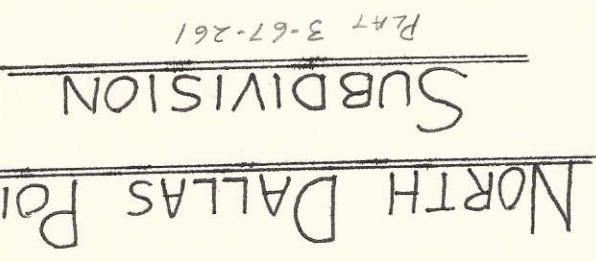 NORTH DALLAS POI
SUBDIVISION
PLAT 3-67-261